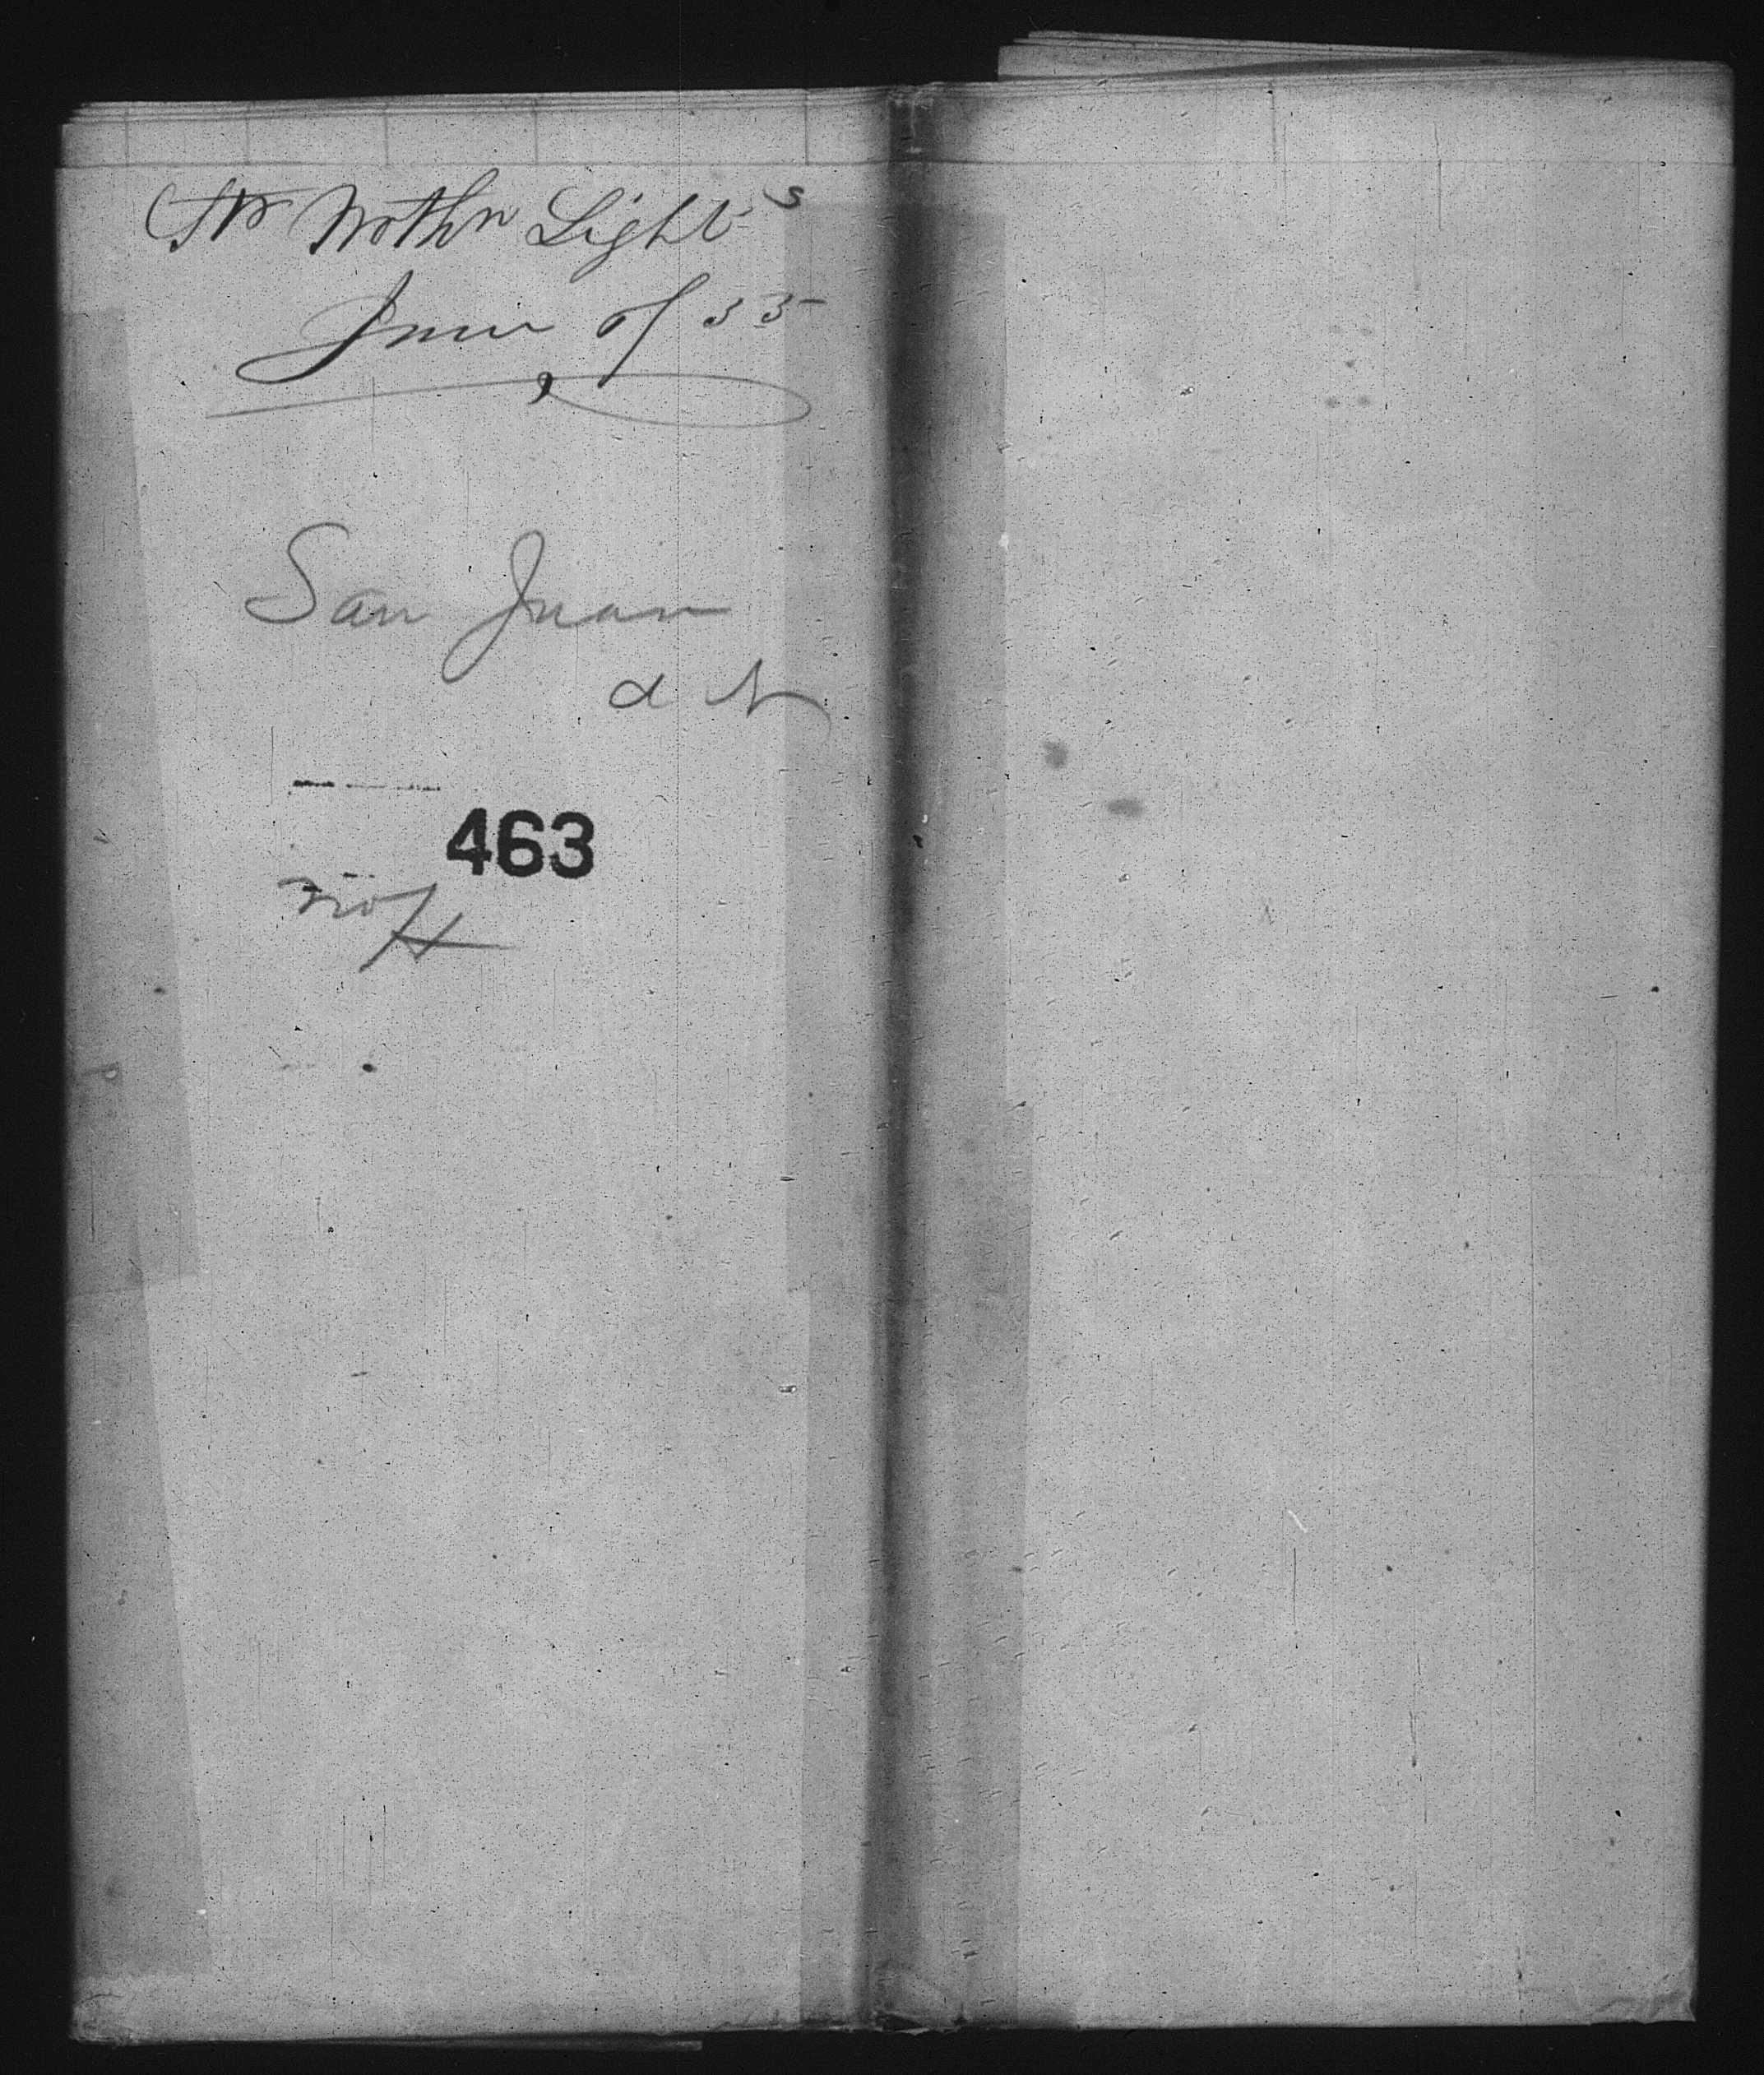 Str Northn Lights
June of 55
San Juan
d N
463